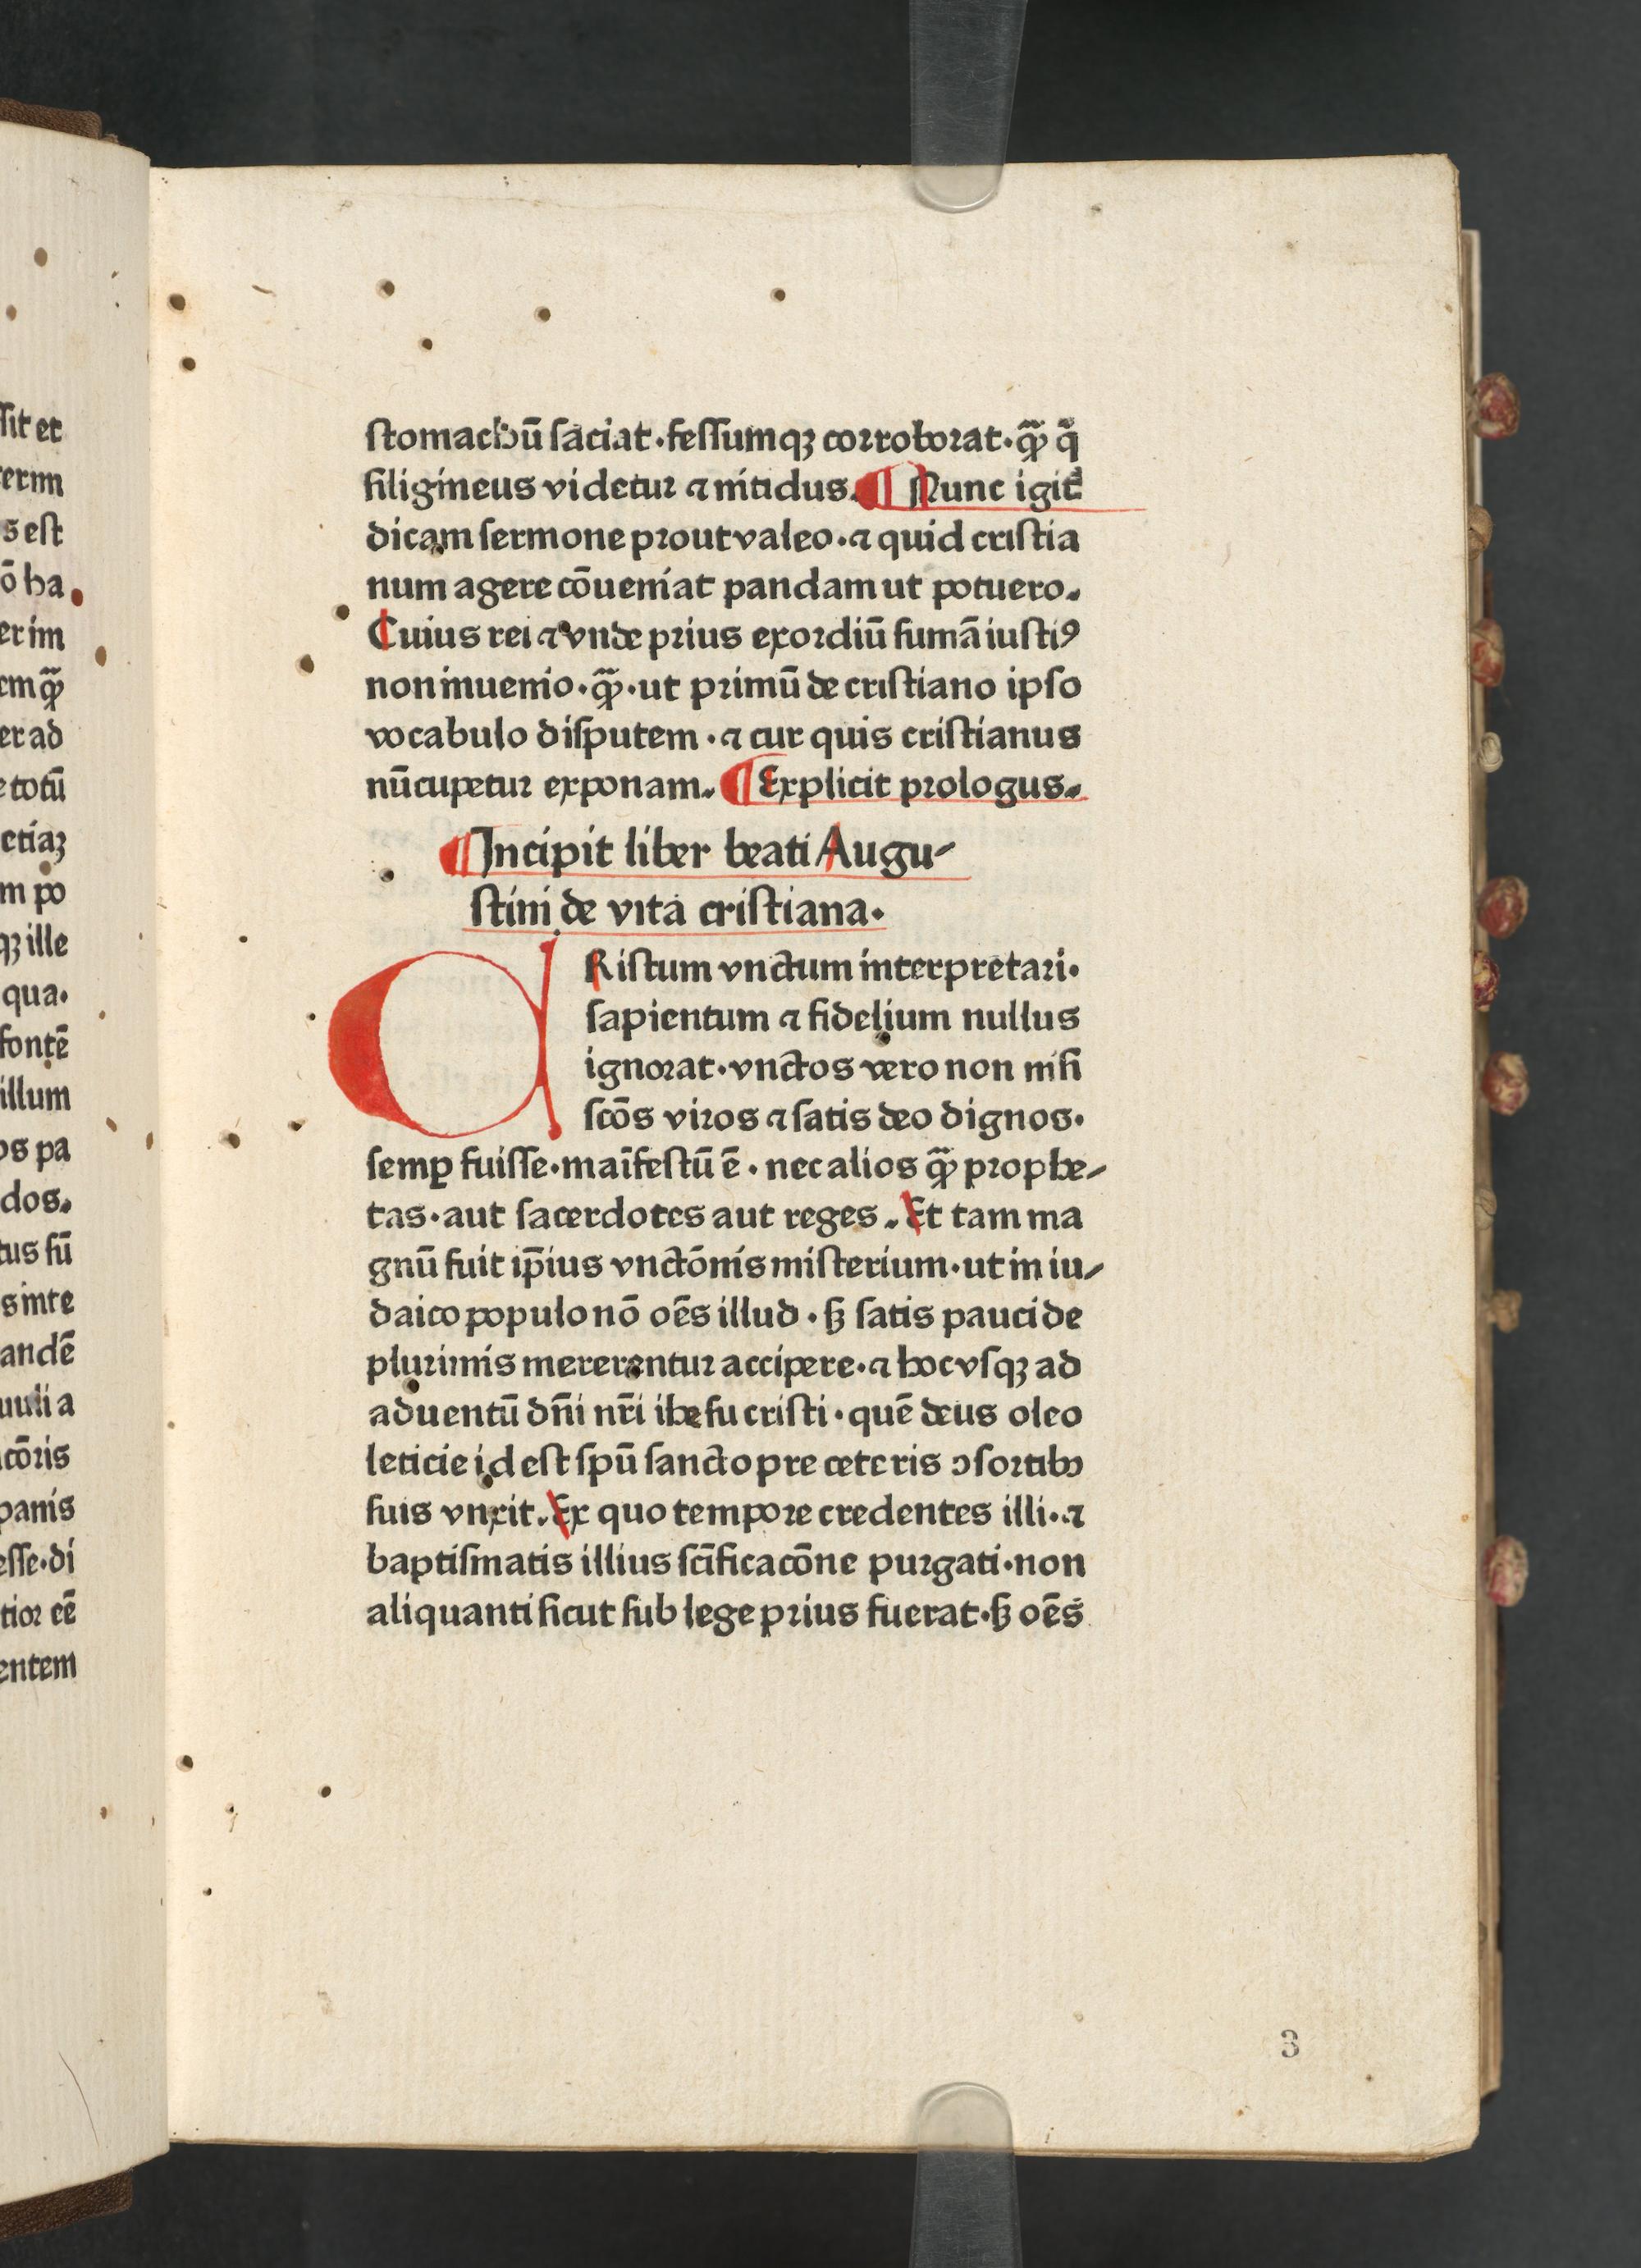 stomachū saciat·fessumqꝫ corroborat·qꝫ̄ q̄
siligineus videtur ⁊ nitidus. Nunc igit᷑
dicam sermone prout valeo·⁊ quid cristia
num agere cōueniat pandam ut potuero.
Cuius rei ⁊ vnde prius exordiū sumā iustiꝰ
non inuenio·qꝫ̄·ut primū de cristiano ipso
vocabulo disputem·⁊ cur quis cristianus
nūcupetur exponam. Explicit prologus.
Incipit liber beati Augu-
stini de vita cristiana·
CRistum vnctum interpretari·
sapientum ⁊ fidelium nullus
ignorat·vnctos vero non nisi
scōs viros ⁊ satis deo dignos·
semꝑ fuisse·maīfestū ē·nec alios qꝫ̄ prophe-
tas·aut sacerdotes aut reges. Et tam ma
gnū fuit ip̄ius vnctōnis misterium·ut in iu-
daico populo nō oēs illud·sꝫ satis pauci de
plurimis mererentur accipere·⁊ hoc vsqꝫ ad
aduentū dn̄i nr̄i ihesu cristi·quē deus oleo
leticie id est spū sancto pre ceteris ↄsortibꝫ
suis vnxit. Ex quo tempore credentes illi·⁊
baptismatis illius scīficacōne purgati·non
aliquanti sicut sub lege prius fuerat·sꝫ oēs
3
sit et
s est
ō ha
er im
er ad
e totū
etiaꝫ
m po
qꝫ ille
qua·
fontē
illum
os pa
dos.
tus sū
s inte
andē
panis
esse·di
tior eē
entem